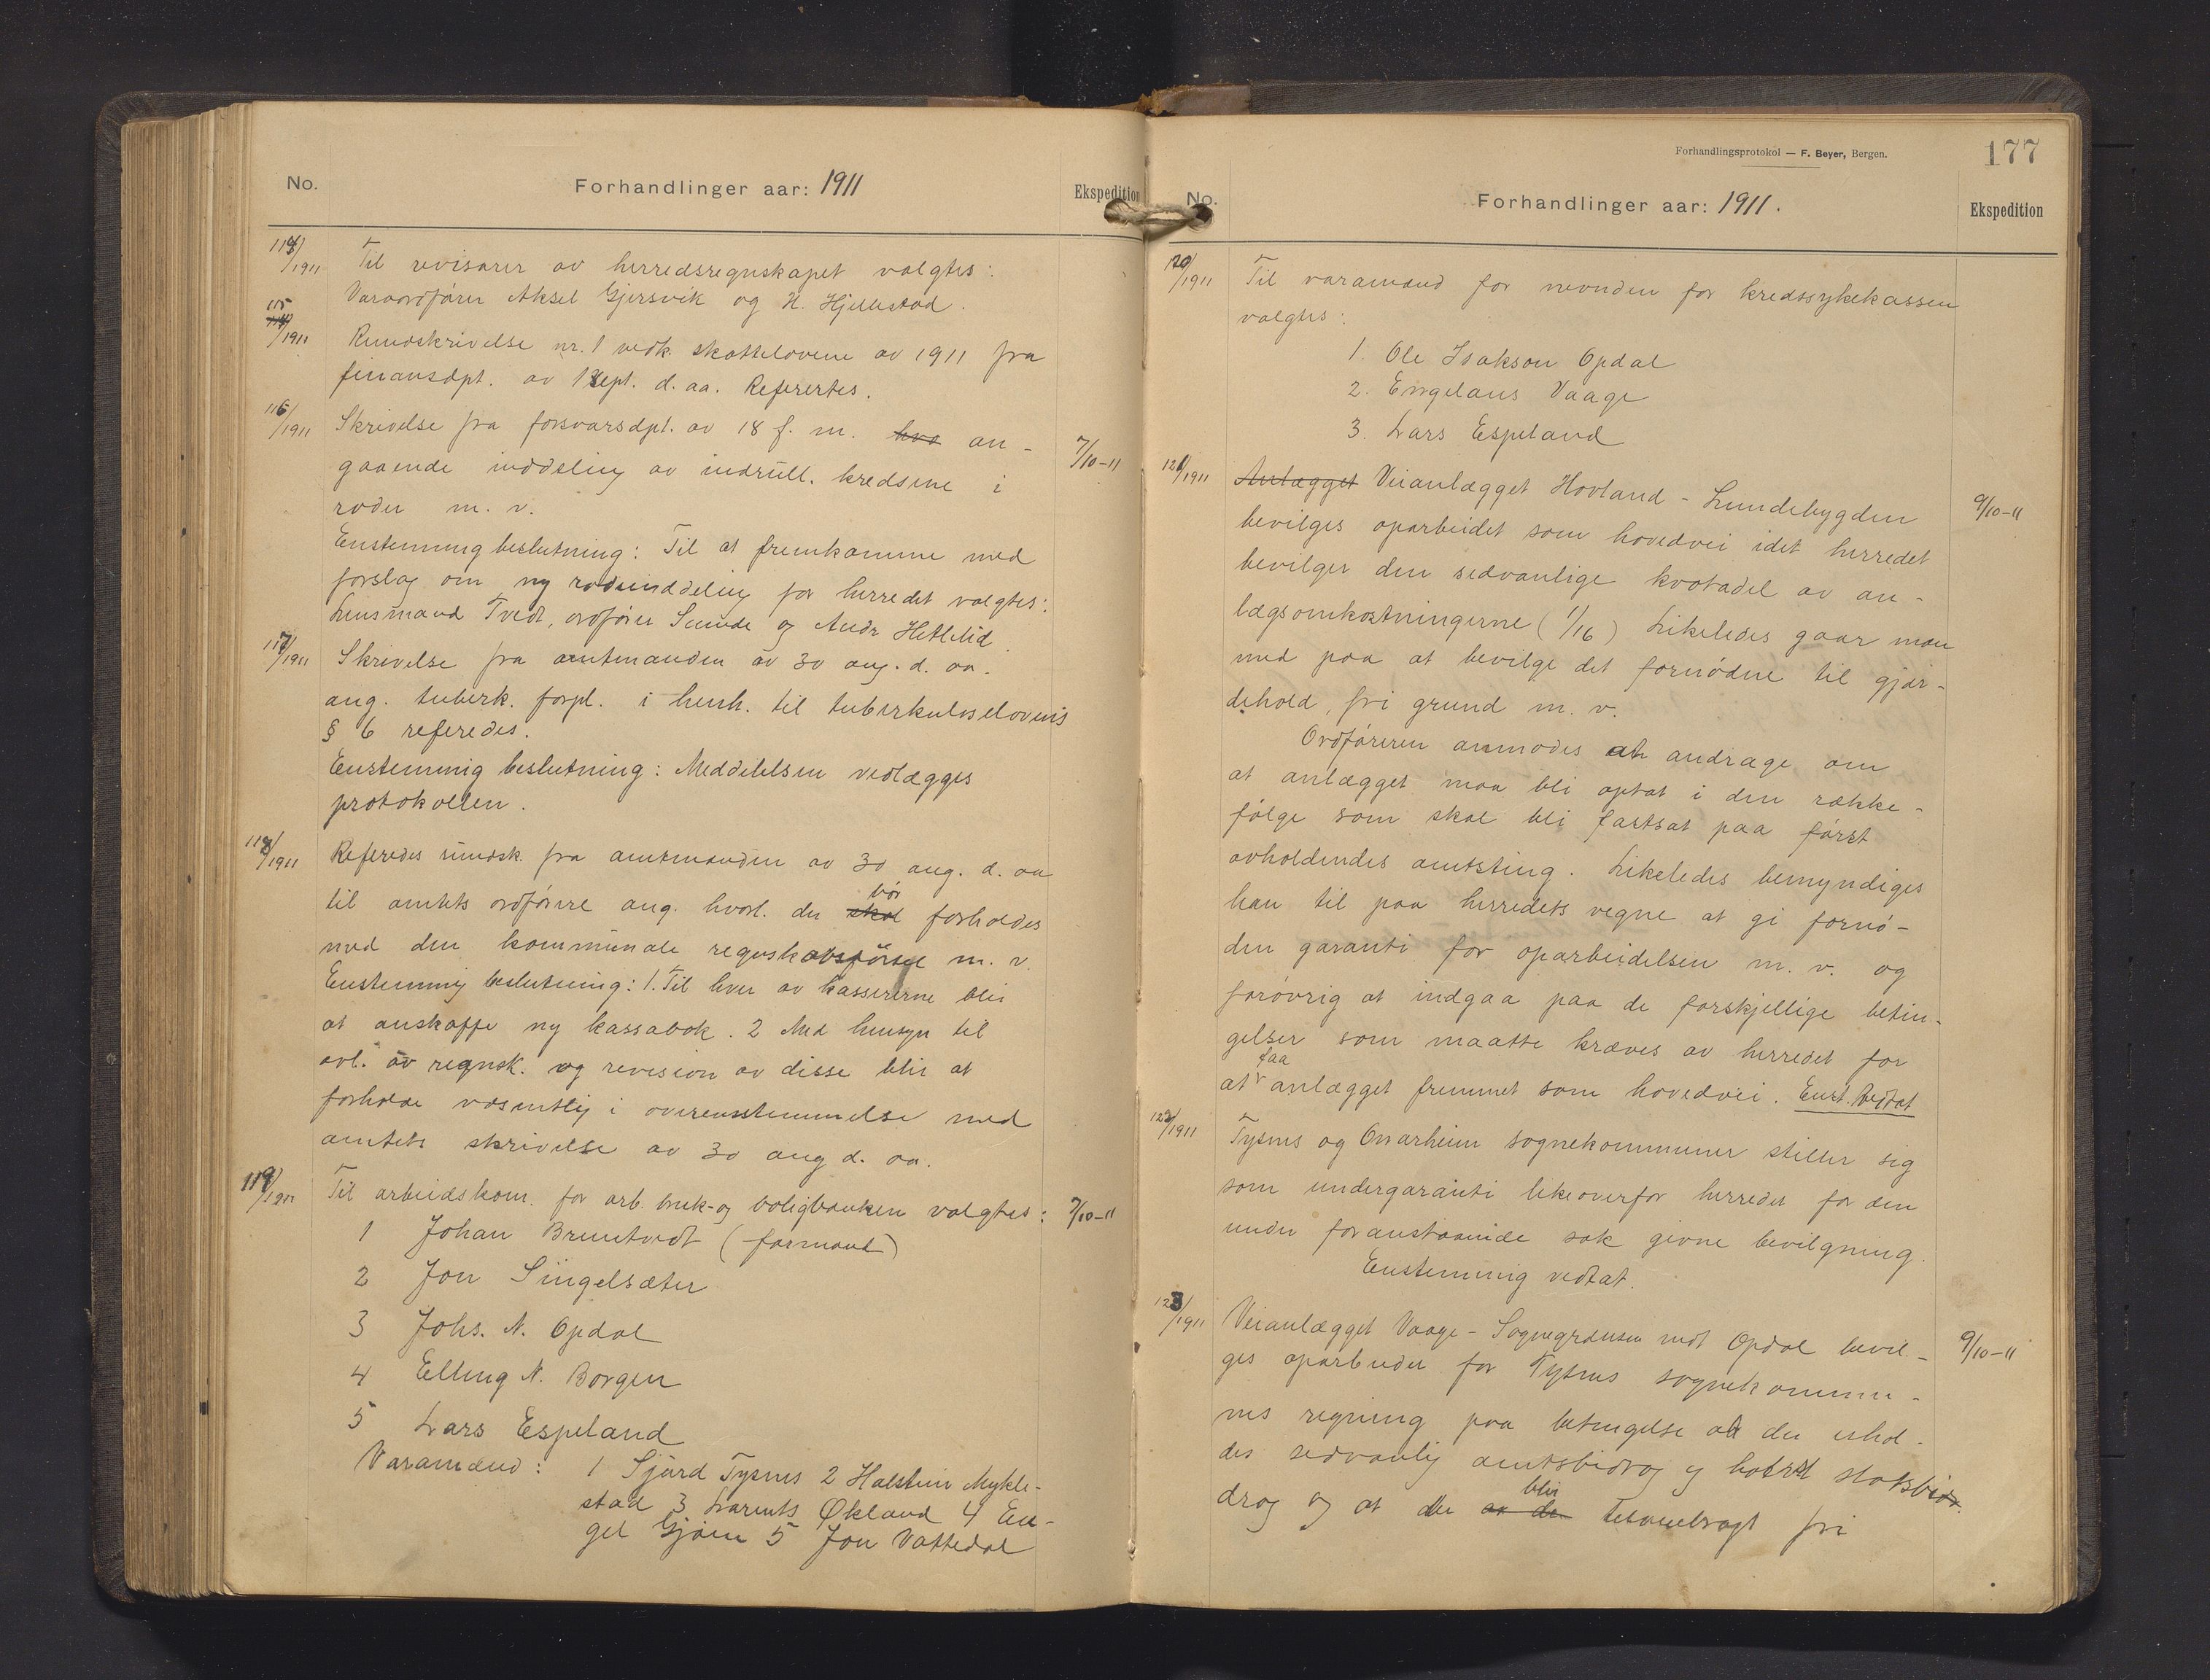 No.
Forhandlinger aar: 1911
Ekspedition
114/1911
Til revisorer av herredsregnskapet valgtes:
Varaordfører Aksel Gjersvik og H. Hjellestad.
115/1911
Rundskrivelse nr. 1 vedk. skattelovene av 1911 fra
finansdpt. av 1 sept. d. aa. Referertes.
116/1911
Skrivelse fra forsvarsdpt. av 18 f. m. hva an-
gaaende inddeling av indrull. kredsene i
roder m. v.
7/10-11
Enstemmig beslutning: Til at fremkomme med
forslag om ny rodeinddeling for herredet valgtes:
Lensmand Tvedt, ordfører Sunde og Andr Hetlelid
117/1911
Skrivelse fra amtmanden av 30 aug. d. aa.
ang. tuberk. forpl. i henh. til tuberkuloselovens
§ 6 referedes.
Enstemmig beslutning: Meddelelsen vedlægges
protokollen.
118/1911
Referedes rundsk. fra amtmanden av 30 aug. d. aa
til amtets ordførere ang. hvorl. der skal bør forholdes
med den kommunale regnskapsførsel m. v.
Enstemmig beslutning: 1. Til hver av kassererne blir
at anskaffe ny kassabok. 2 Med hensyn til
avl. av regnsk. og revision av disse blir at
forholde væsentlig i overensstemmelse med
amtets skrivelse av 30 aug d. aa.
119/1911
Til arbeidskom. for arb. bruk- og boligbanken valgtes:
7/10-11
1 Johan Bruntvedt (formand)
2 Jon Singelsæter
3 Johs. N. Opdal
4 Elling N. Borgen
5 Lars Espeland
Varamænd: 1 Sjurd Tysnes 2 Halstein Mykle-
stad 3 Larents Økland 4 En-
gel Gjøen 5 Jon Vattedal
Forhandlingsprotokol — F. Beyer, Bergen.
177
No.
Forhandlinger aar: 1911.
Ekspedition
120/1911
Til varamænd for nevnden for kredssykekassen
valgtes:
1. Ole Isakson Opdal
2. Engelans Vaage
3. Lars Espeland
121/1911
Anlægget Veianlægget Hovland - Lundebygden
9/10-11
bevilges oparbeidet som hovedvei idet herredet
bevilger den sedvanlige kvotadel av an-
lægsomkostningerne (1/16) Likeledes gaar man
med paa at bevilge det fornødne til gjær-
dehold, fri grund m. v.
Ordføreren anmodes at andrage om
at anlægget maa bli optat i den række-
følge som skal bli fastsat paa først
avholdendes amtsting. Likeledes bemyndiges
han til paa herredets vegne at gi fornø-
den garanti for oparbeidelsen m. v. og
forøvrig at indgaa paa de forskjellige betin-
gelser som maatte kræves av herredet for
at faa anlægget fremmet som hovedvei. Enst. vedtat
122/1911
Tysnes og Onarheim sognekommuner stiller sig
som undergaranti likeoverfor herredet for den
under foranstaaende sak givne bevilgning.
Enstemmig vedtat.
123/1911
Veianlægget Vaage - Sognegrænsen mot Opdal bevil-
9/10-11
ges oparbeidet for Tysnes sognekommu-
nes regning paa betingelse at der erhol-
des sedvanlig amtsbidrag og statsbi
drag og at der av de blir tilveiebragt fri